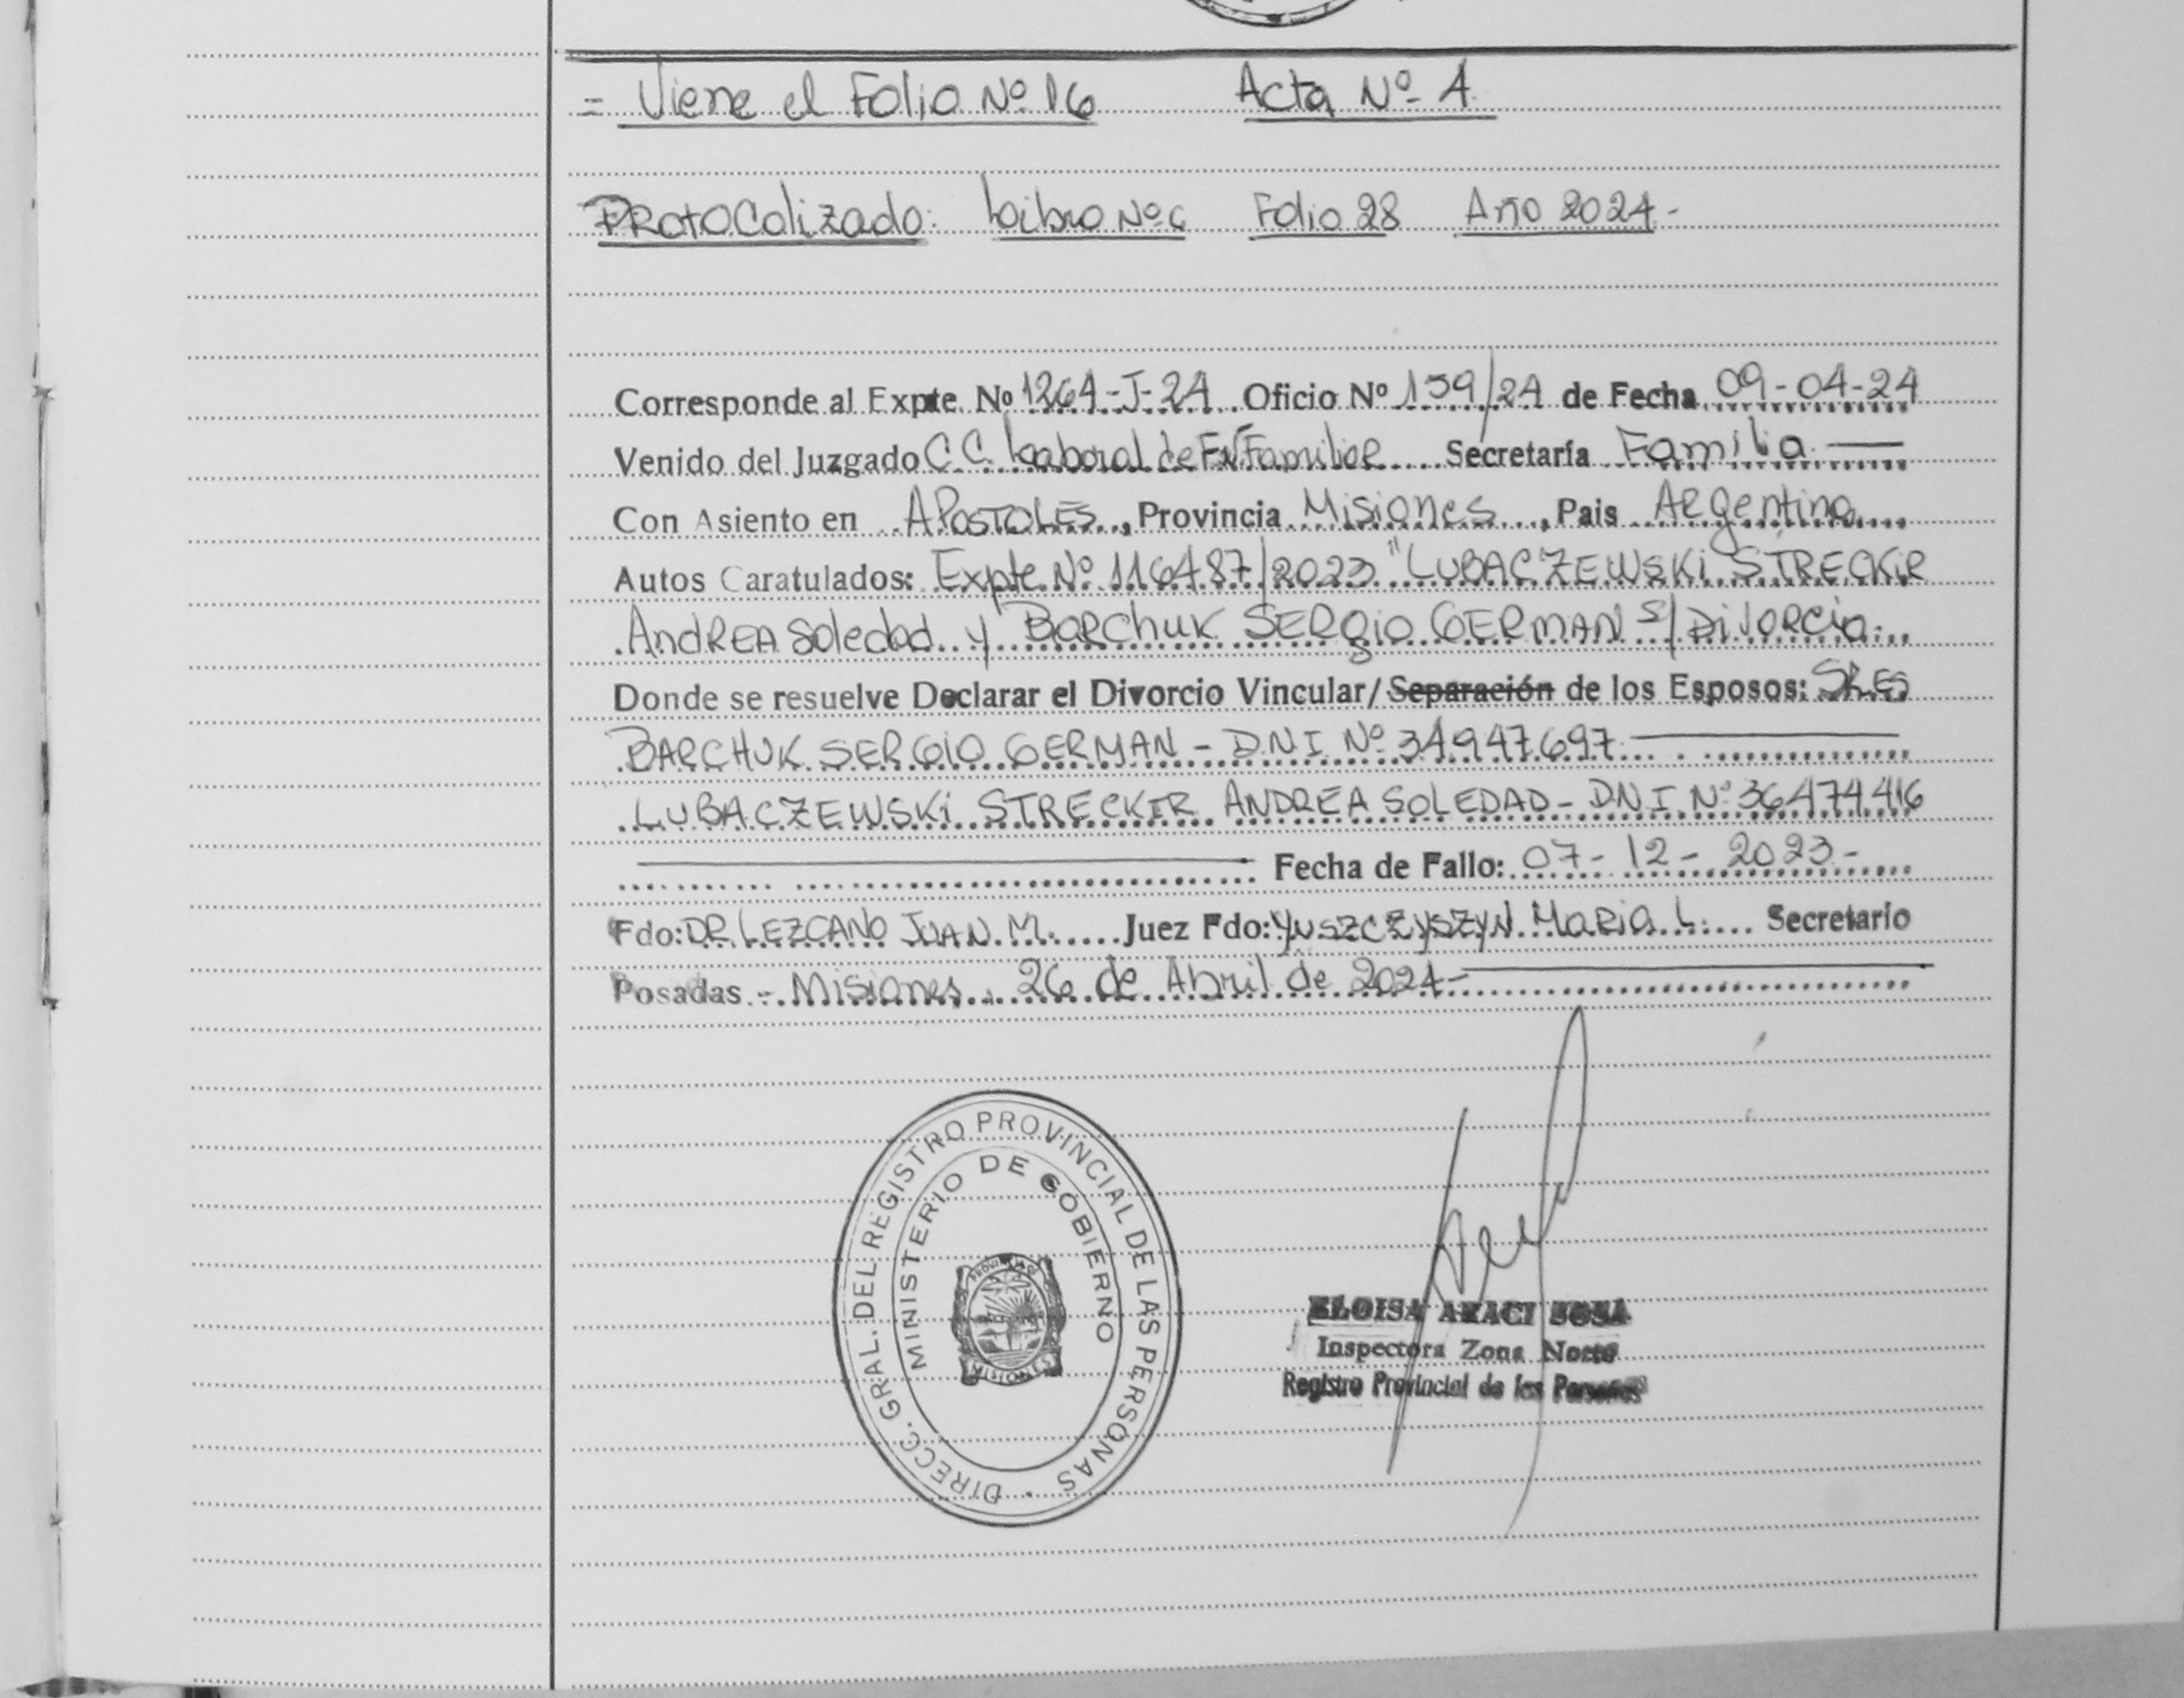 = Viene el Folio Nº 16 Acta Nº 4
PROTOCOlizado: Libro Nº 6 Folio 28 Año 2024-
Corresponde al Expte. Nº 1264-J-24 Oficio Nº 159/24 de Fecha 09-04-24
Venido del Juzgado C.C. Laboral de Familiar Secretaría Familia
Con Asiento en APOSTOLES, Provincia Misiones, Pais Argentina
Autos Caratulados: Expte. Nº 116487/2023 "LUBACZEWSKI STRECKIR
ANDREA Soledad y BARChUK SERgio GERMAN s/ Divorcio.
Donde se resuelve Declarar el Divorcio Vincular/Separación de los Esposos: SRES
BARCHUK SERGIO GERMAN - DNI Nº 34947.697
LUBACZEWSKI STRECKIR ANDREA SOLEDAD - DNI Nº 36474.416
Fecha de Fallo: 07-12-2023-
Fdo: DR LEZCANO JUAN. M. Juez Fdo: YUSZCZYSZYN MARIA L. Secretario
Posadas - Misiones, 26 de Abril de 2024-
DIRECC. GRAL. DEL REGISTRO PROVINCIAL DE LAS PERSONAS
MINISTERIO DE GOBIERNO
PROVINCIA DE
MISIONES
ELOISA ARACI SOSA
Inspectora Zona Norte
Registro Provincial de las Personas